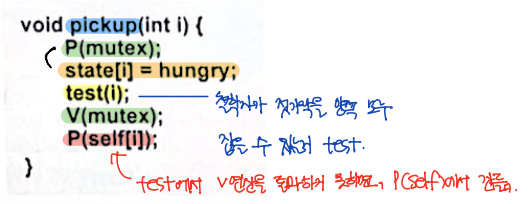 void pickup(int i) {
P(mutex);
state[i] = hungry;
test(i);
철학자가 젓가락을 양쪽 모두
V(mutex);
잡을 수 있는지 test.
P(self[i]);
test에서 V연산을 통과하지 못하면, P(self)에서 걸림.
}